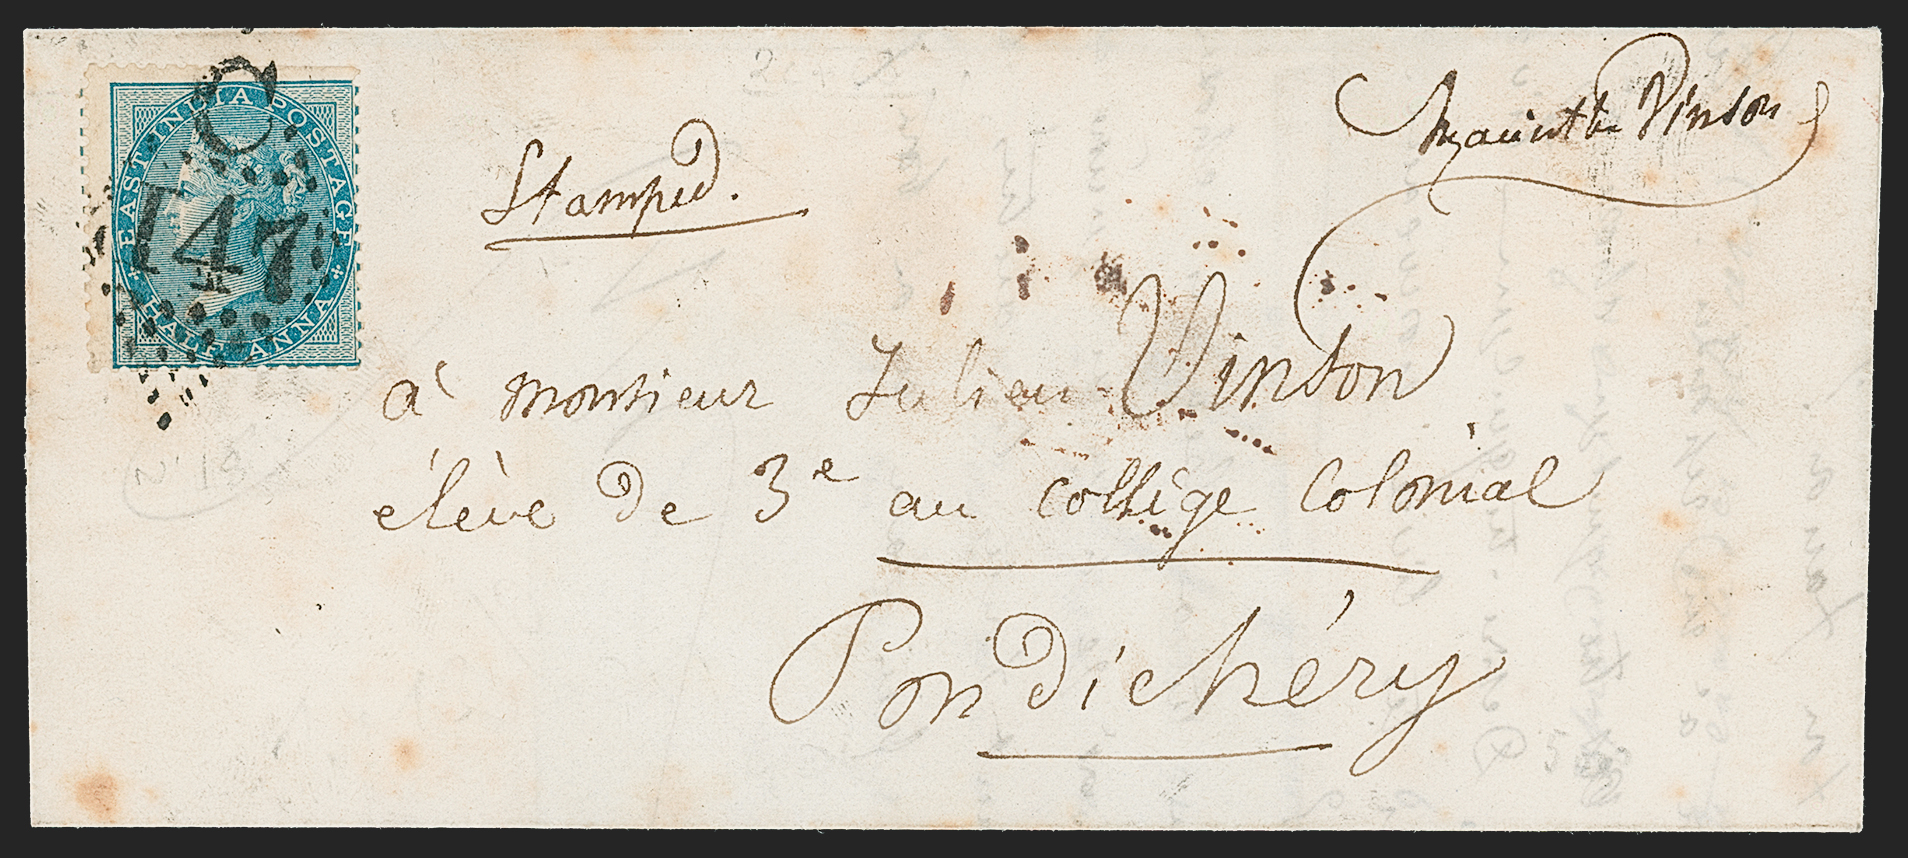 EAST INDIA POSTAGE
HALF ANNA
C
147
Stamped.
Hyacinthe Vinson
à monsieur Julien Vinson
élève de 3e au collège Colonial
Pondichéry